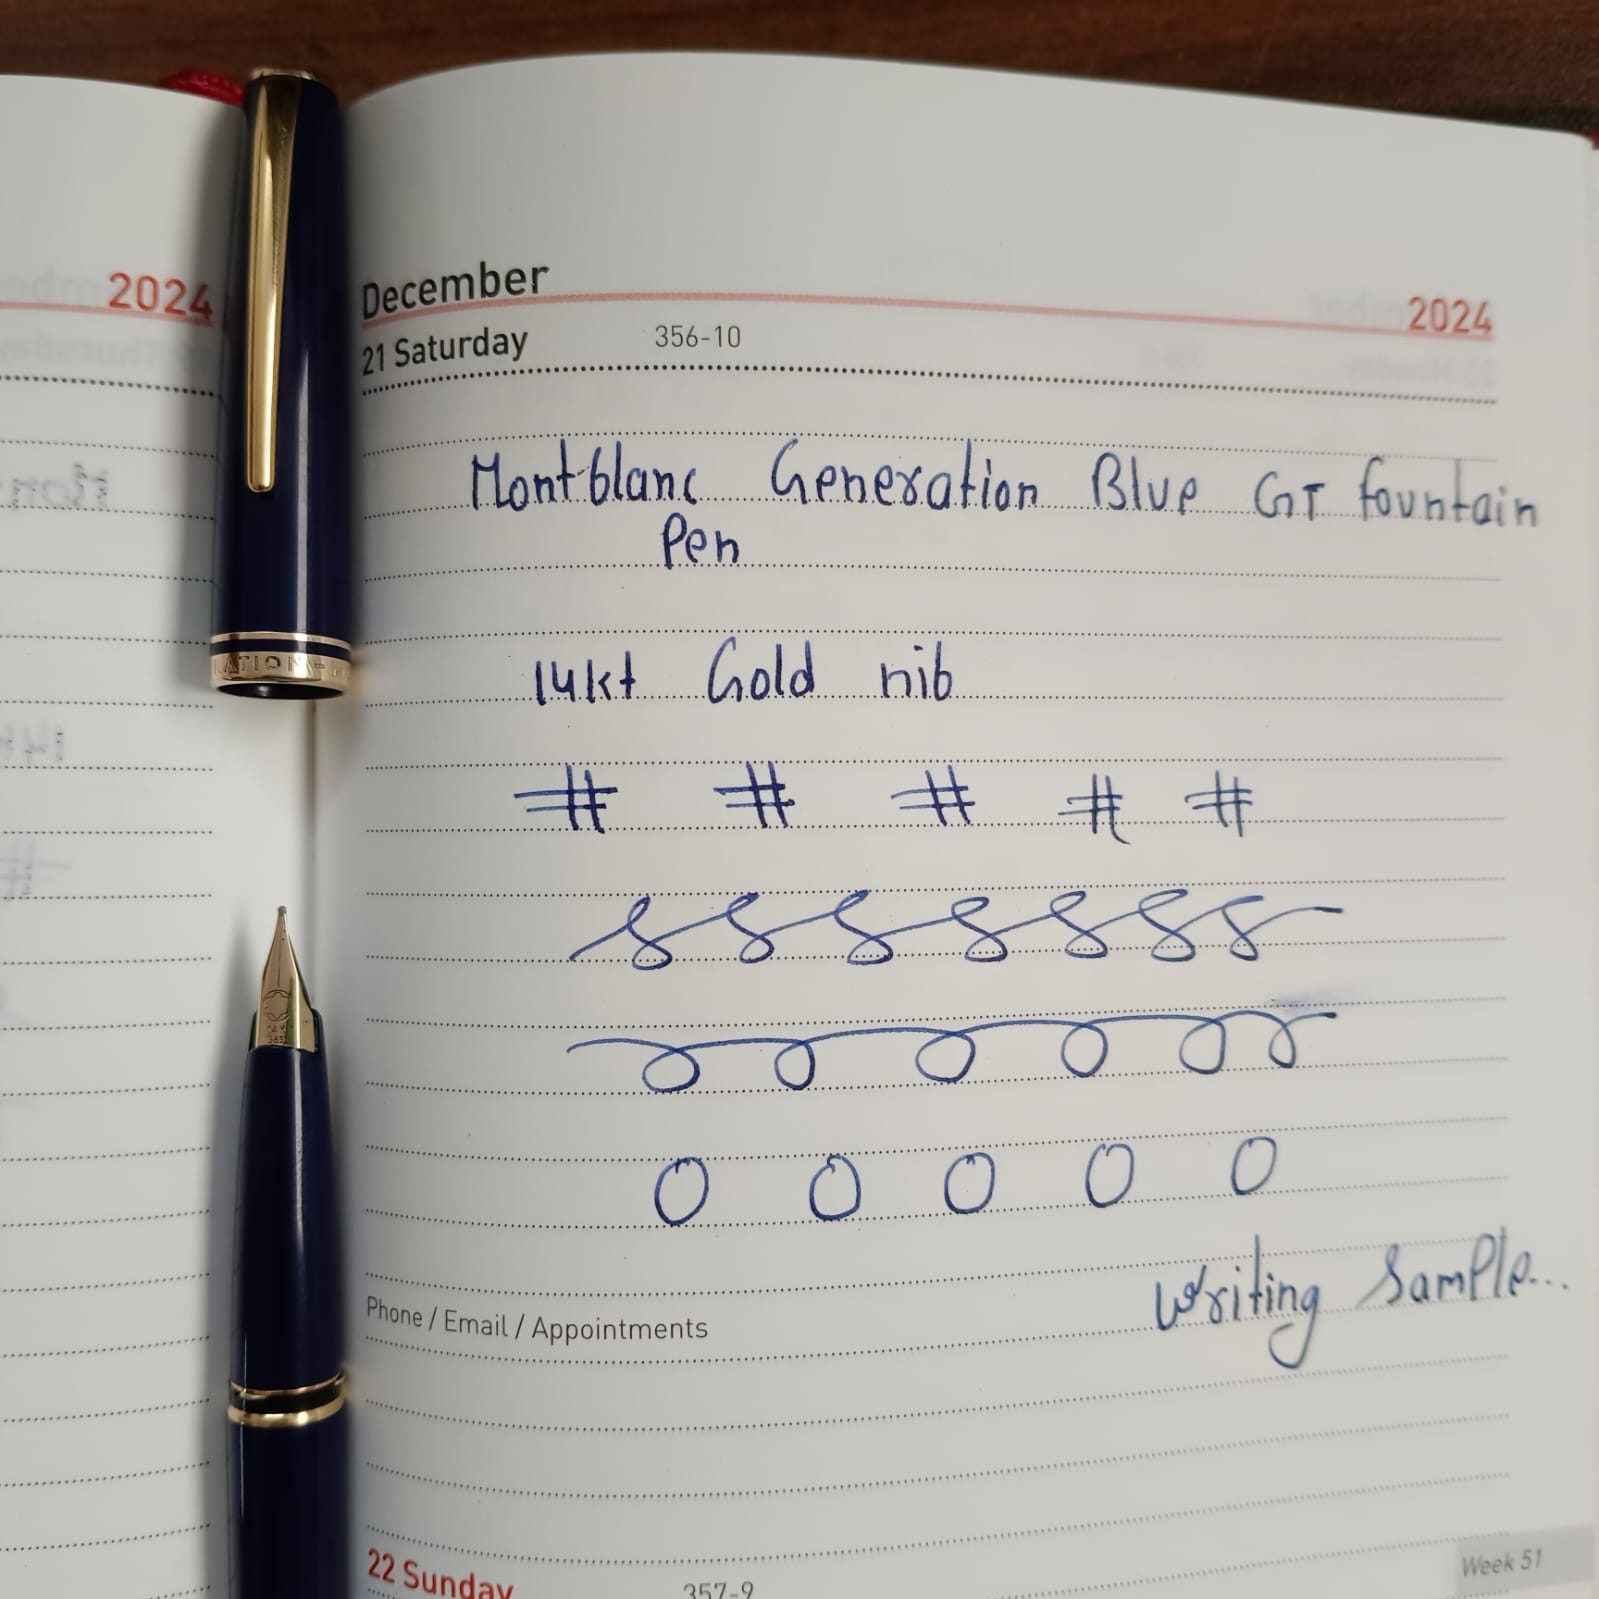 2024
December
2024
21 Saturday 356-10
Montblanc Generation Blue GT fountain
Pen
14kt Gold nib
# # # # #
O O O O O
Writing Sample...
Phone / Email / Appointments
22 Sunday 357-9
Week 51
14K
585